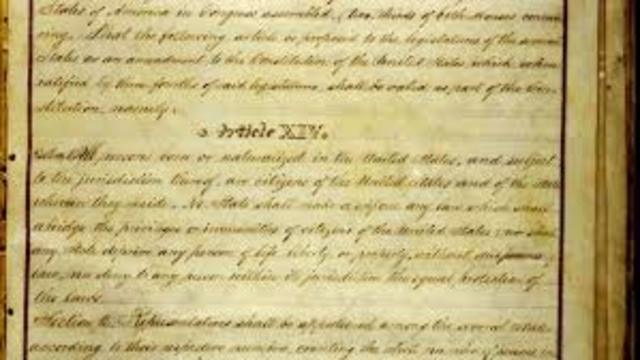 States of America in Congress assembled, (two thirds of both Houses concur-
ring,) That the following article be proposed to the legislatures of the several
States as an amendment to the Constitution of the United States, which, when
ratified by three fourths of said legislatures, shall be valid as part of the Con-
stitution, namely:
Article XIV.
Section 1. All persons born or naturalized in the United States, and subject
to the jurisdiction thereof, are citizens of the United States and of the State
wherein they reside. No State shall make or enforce any law which shall
abridge the privileges or immunities of citizens of the United States; nor shall
any State deprive any person of life, liberty, or property, without due process of
law, nor deny to any person within its jurisdiction the equal protection of
the laws.
Section 2. Representatives shall be apportioned among the several States
according to their respective numbers, counting the whole number of persons in